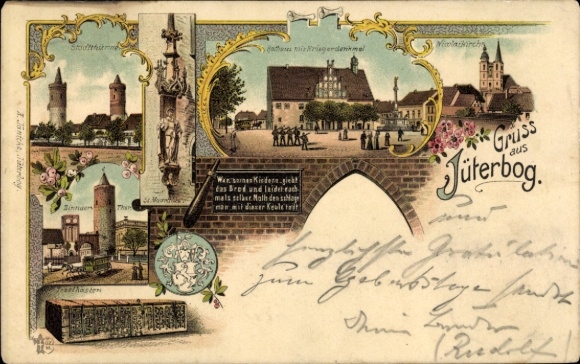 Stadtthürme
Rathaus mit Kriegerdenkmal
Nicolaikirche
Gruss
aus
Jüterbog.
St. Mauritius
Wer seinen Kindern giebt
das Brod und leidet nach-
mals selber Noth den schlage
man mit dieser Keule todt
Zinnaer Thor
Tetzelkasten
und
herzlichste Gratulation
zum Geburtstage sendet
Deine
(Rudolf)